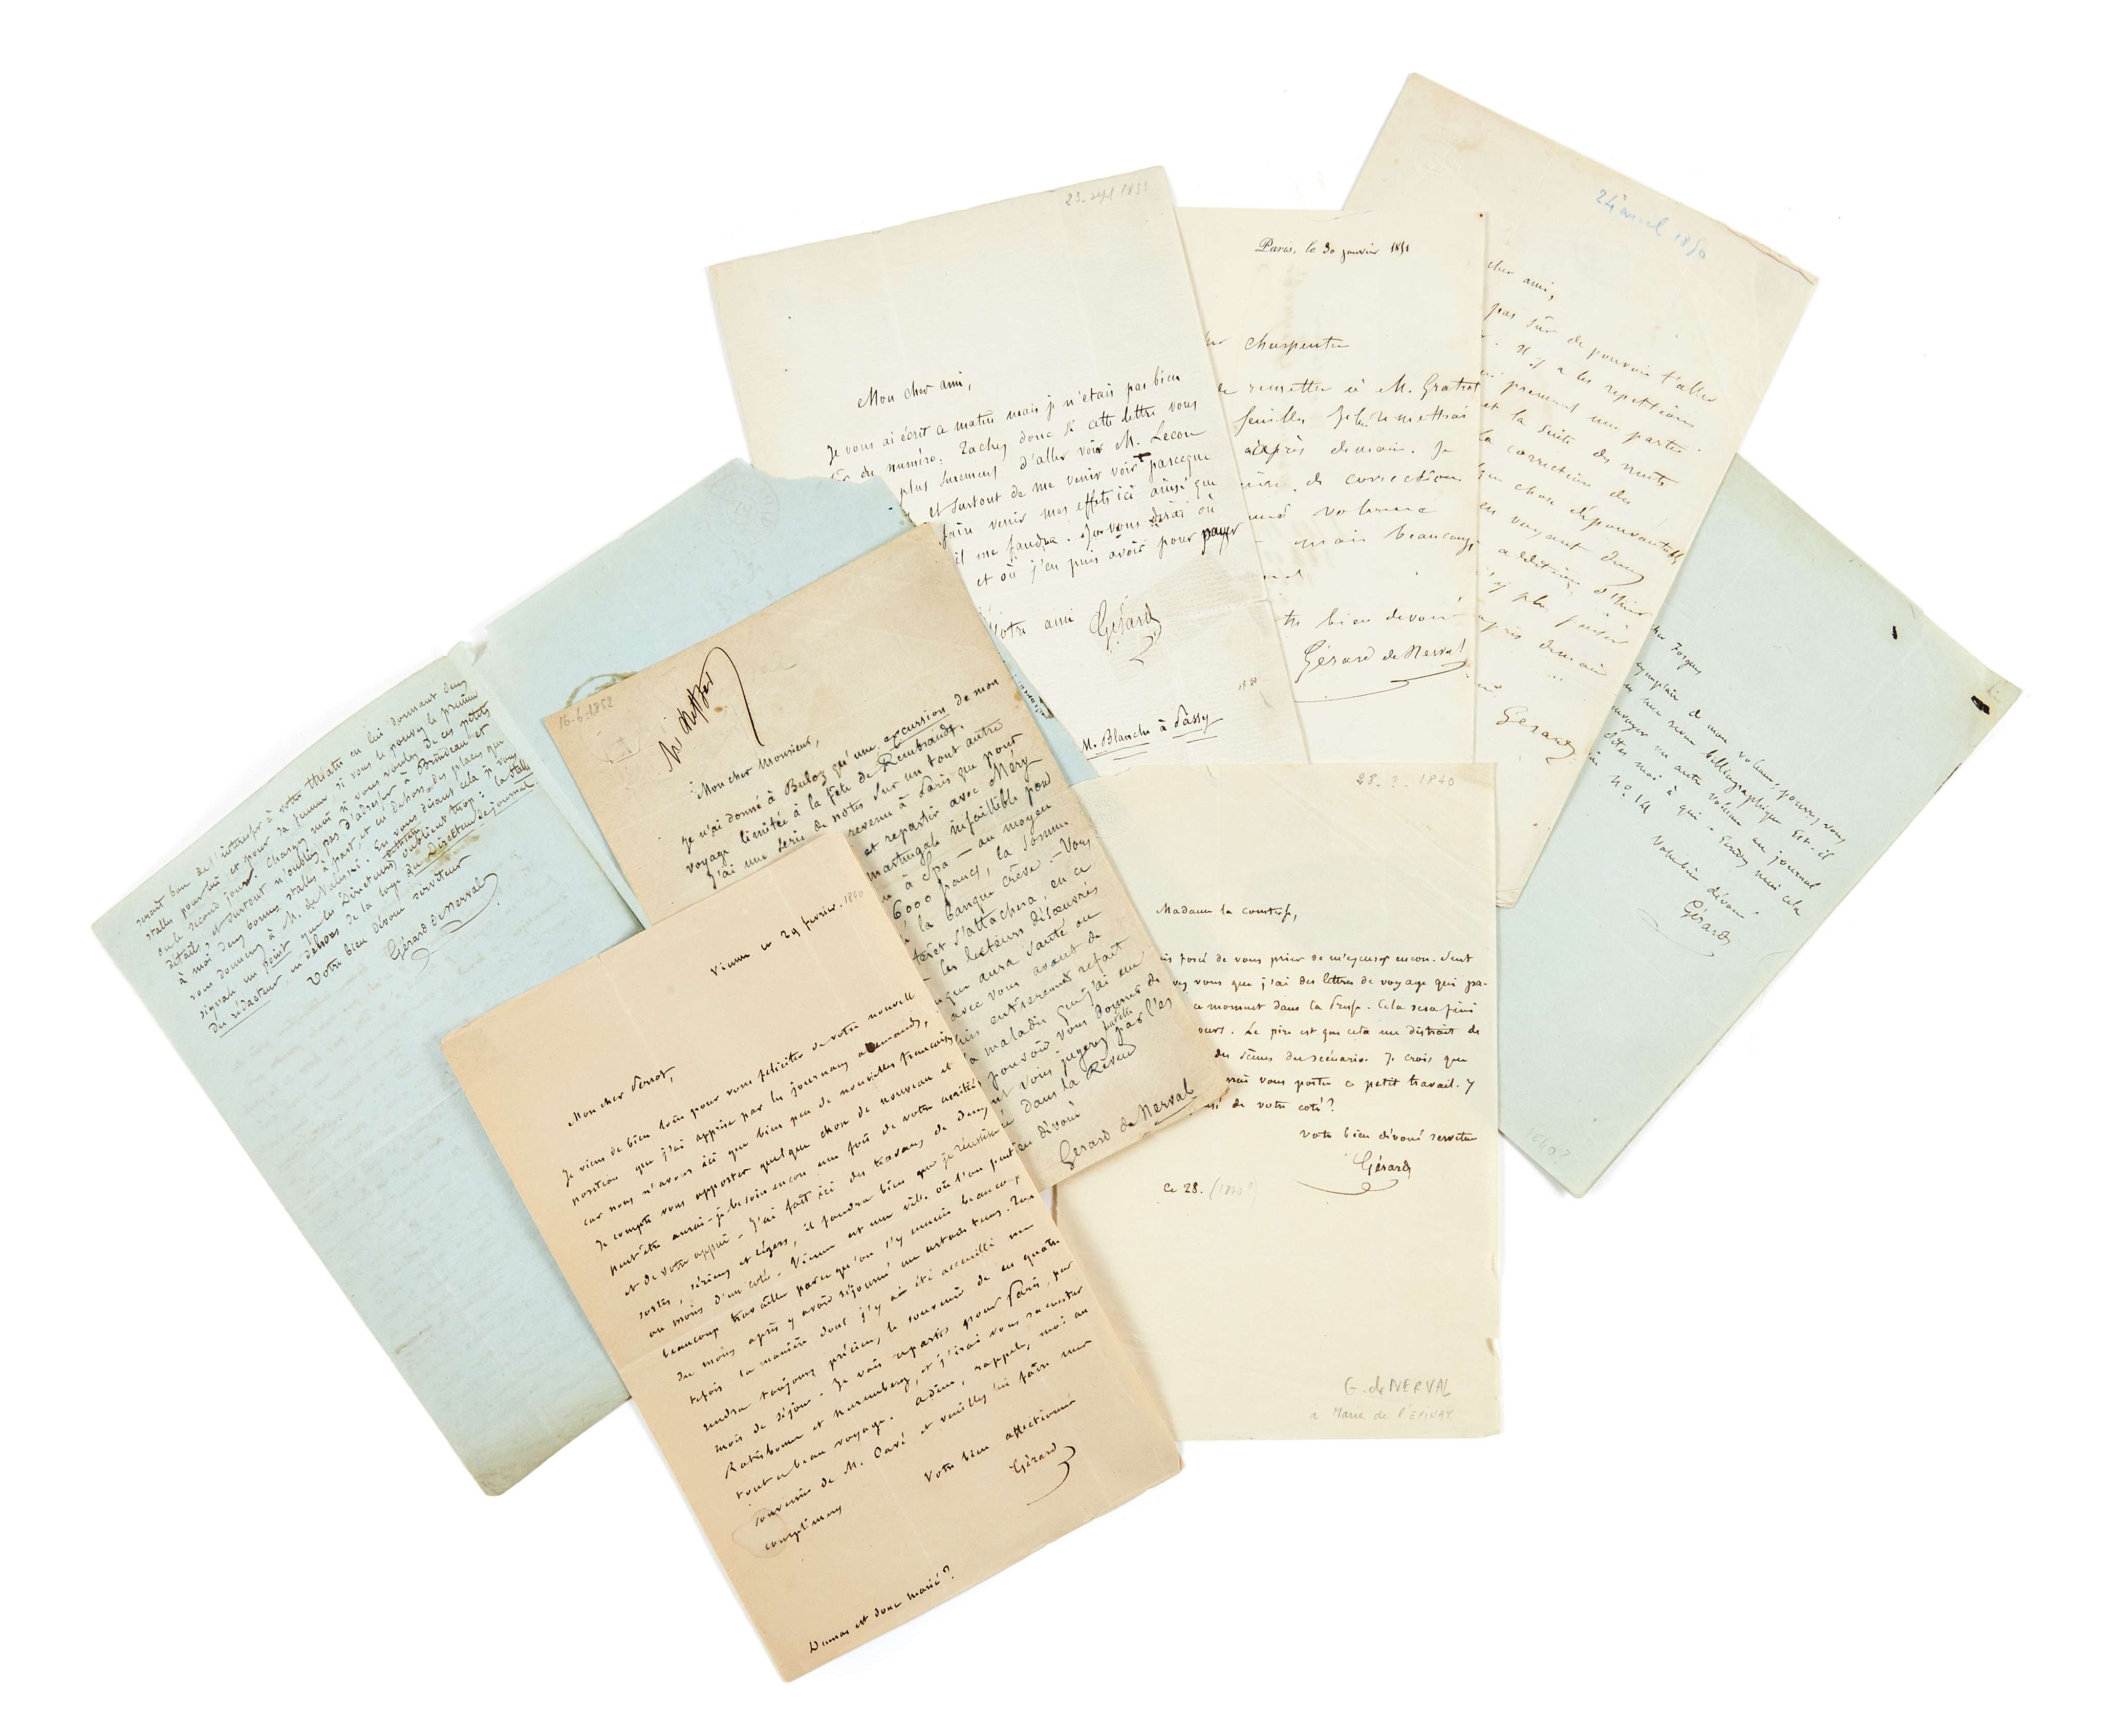 sent bon de l'intéresser à votre théâtre en lui donnant deux
stalles pour lui et pour sa femme si vous le pouvez le premier
ou le second jour. Chargez moi si vous voulez de ces petits
détails, et surtout n'oubliez pas d'adresser à Bruneau et
à moi deux bonnes stalles à part, et en dehors des places que
vous donnerez à M. de
signale un point que les Directeurs oublient trop: la stalle
du rédacteur en dehors de la loge du Directeur de journal.
Votre bien dévoué serviteur
Gérard de Nerval
23 sept 1853
Mon cher ami,
Je vous ai écrit ce matin mais je n'étais pas bien
sûr du numéro. Tachez donc si cette lettre vous
plus surement d'aller voir M. Lecou
et surtout de me venir voir parceque
faire venir mes effets ici ainsi que
il me faudra. Je vous dirai où
et où j'en puis avoir pour payer
Votre ami Gérard
M. Blanche à Passy
Paris, le 30 janvier 1851
Charpentier
de remettre à M. Gratiot
feuilles Je les remettrai
après demain. Je
de corrections
volume
mais beaucoup
bien dévoué
Gérard de Nerval
24 avril 1850
cher ami,
pas sûr de pouvoir t'aller
Il y a les repetitions
qui prennent une partie
et la suite des nuits
la correction des
chose d'épouvantable
en voyant deux
additions d'hier
plus penser
après demain
Gérard
cher Forgues
exemplaire de mon volume, pourrez vous
bibliographique Est-il
envoyer un autre volume au journal
dites moi à qui. Rendez moi cela
No 14
Votre bien dévoué
Gérard
1840?
16-6-1852
Mon cher Monsieur,
Je n'ai donné à Buloz qu'une excursion de mon
voyage limitée à la fête de Rembrandt.
J'ai une série de notes sur un tout autre
revenu à Paris que pour
et repartir avec Méry
martingale infaillible pour
à Spa — au moyen
6000 francs, la somme
la banque crève. — Vous
s'attachera, en ce
les lecteurs désœuvrés
aura sauté ou
avec vous avant de
entièrement refait
maladie que j'ai eue
pouvoir vous donner de
vous jugerez par les
dans la Revue
dévoué
Gérard de Nerval
28 - ? - 1840
Madame la comtesse,
forcé de vous prier de m'excuser encore. Savez
vous que j'ai des lettres de voyage qui pa-
ce moment dans la Presse. Cela sera fini
jours. Le pire est que cela me distrait de
des scènes du scénario. Je crois que
vous porter ce petit travail. Y
de votre coté?
Votre bien dévoué serviteur
Gérard
Ce 28. (1840?)
G. de NERVAL
à Marie de l'EPINAY
Vienne ce 29 février. 1840
Mon cher Perrot,
Je viens de bien loin pour vous féliciter de votre nouvelle
position que j'ai apprise par les journaux allemands,
car nous n'avons ici que bien peu de nouvelles françaises
Je compte vous apporter quelque chose de nouveau et
peut être aurai-je besoin encore une fois de votre amitié
et de votre appui - J'ai fait ici des travaux de deux
sortes, sérieux et légers, il faudra bien que je réussisse
au moins d'un coté. Vienne est une ville où l'on peut
beaucoup travailler parce qu'on s'y ennuie beaucoup,
du moins après y avoir séjourné un certain tems. Tou
tefois la manière dont j'y ai été accueilli me
rendra toujours précieux le souvenir de ces quatre
mois de séjour. Je vais repartir pour Paris, par
Ratisbonne et Nuremberg, et j'irai vous raconter
tout ce beau voyage. Adieu, rappelez moi au
souvenir de M. Cavé et veuillez lui faire mes
complimens
Votre bien affectionné
Gérard
Dumas est donc marié?